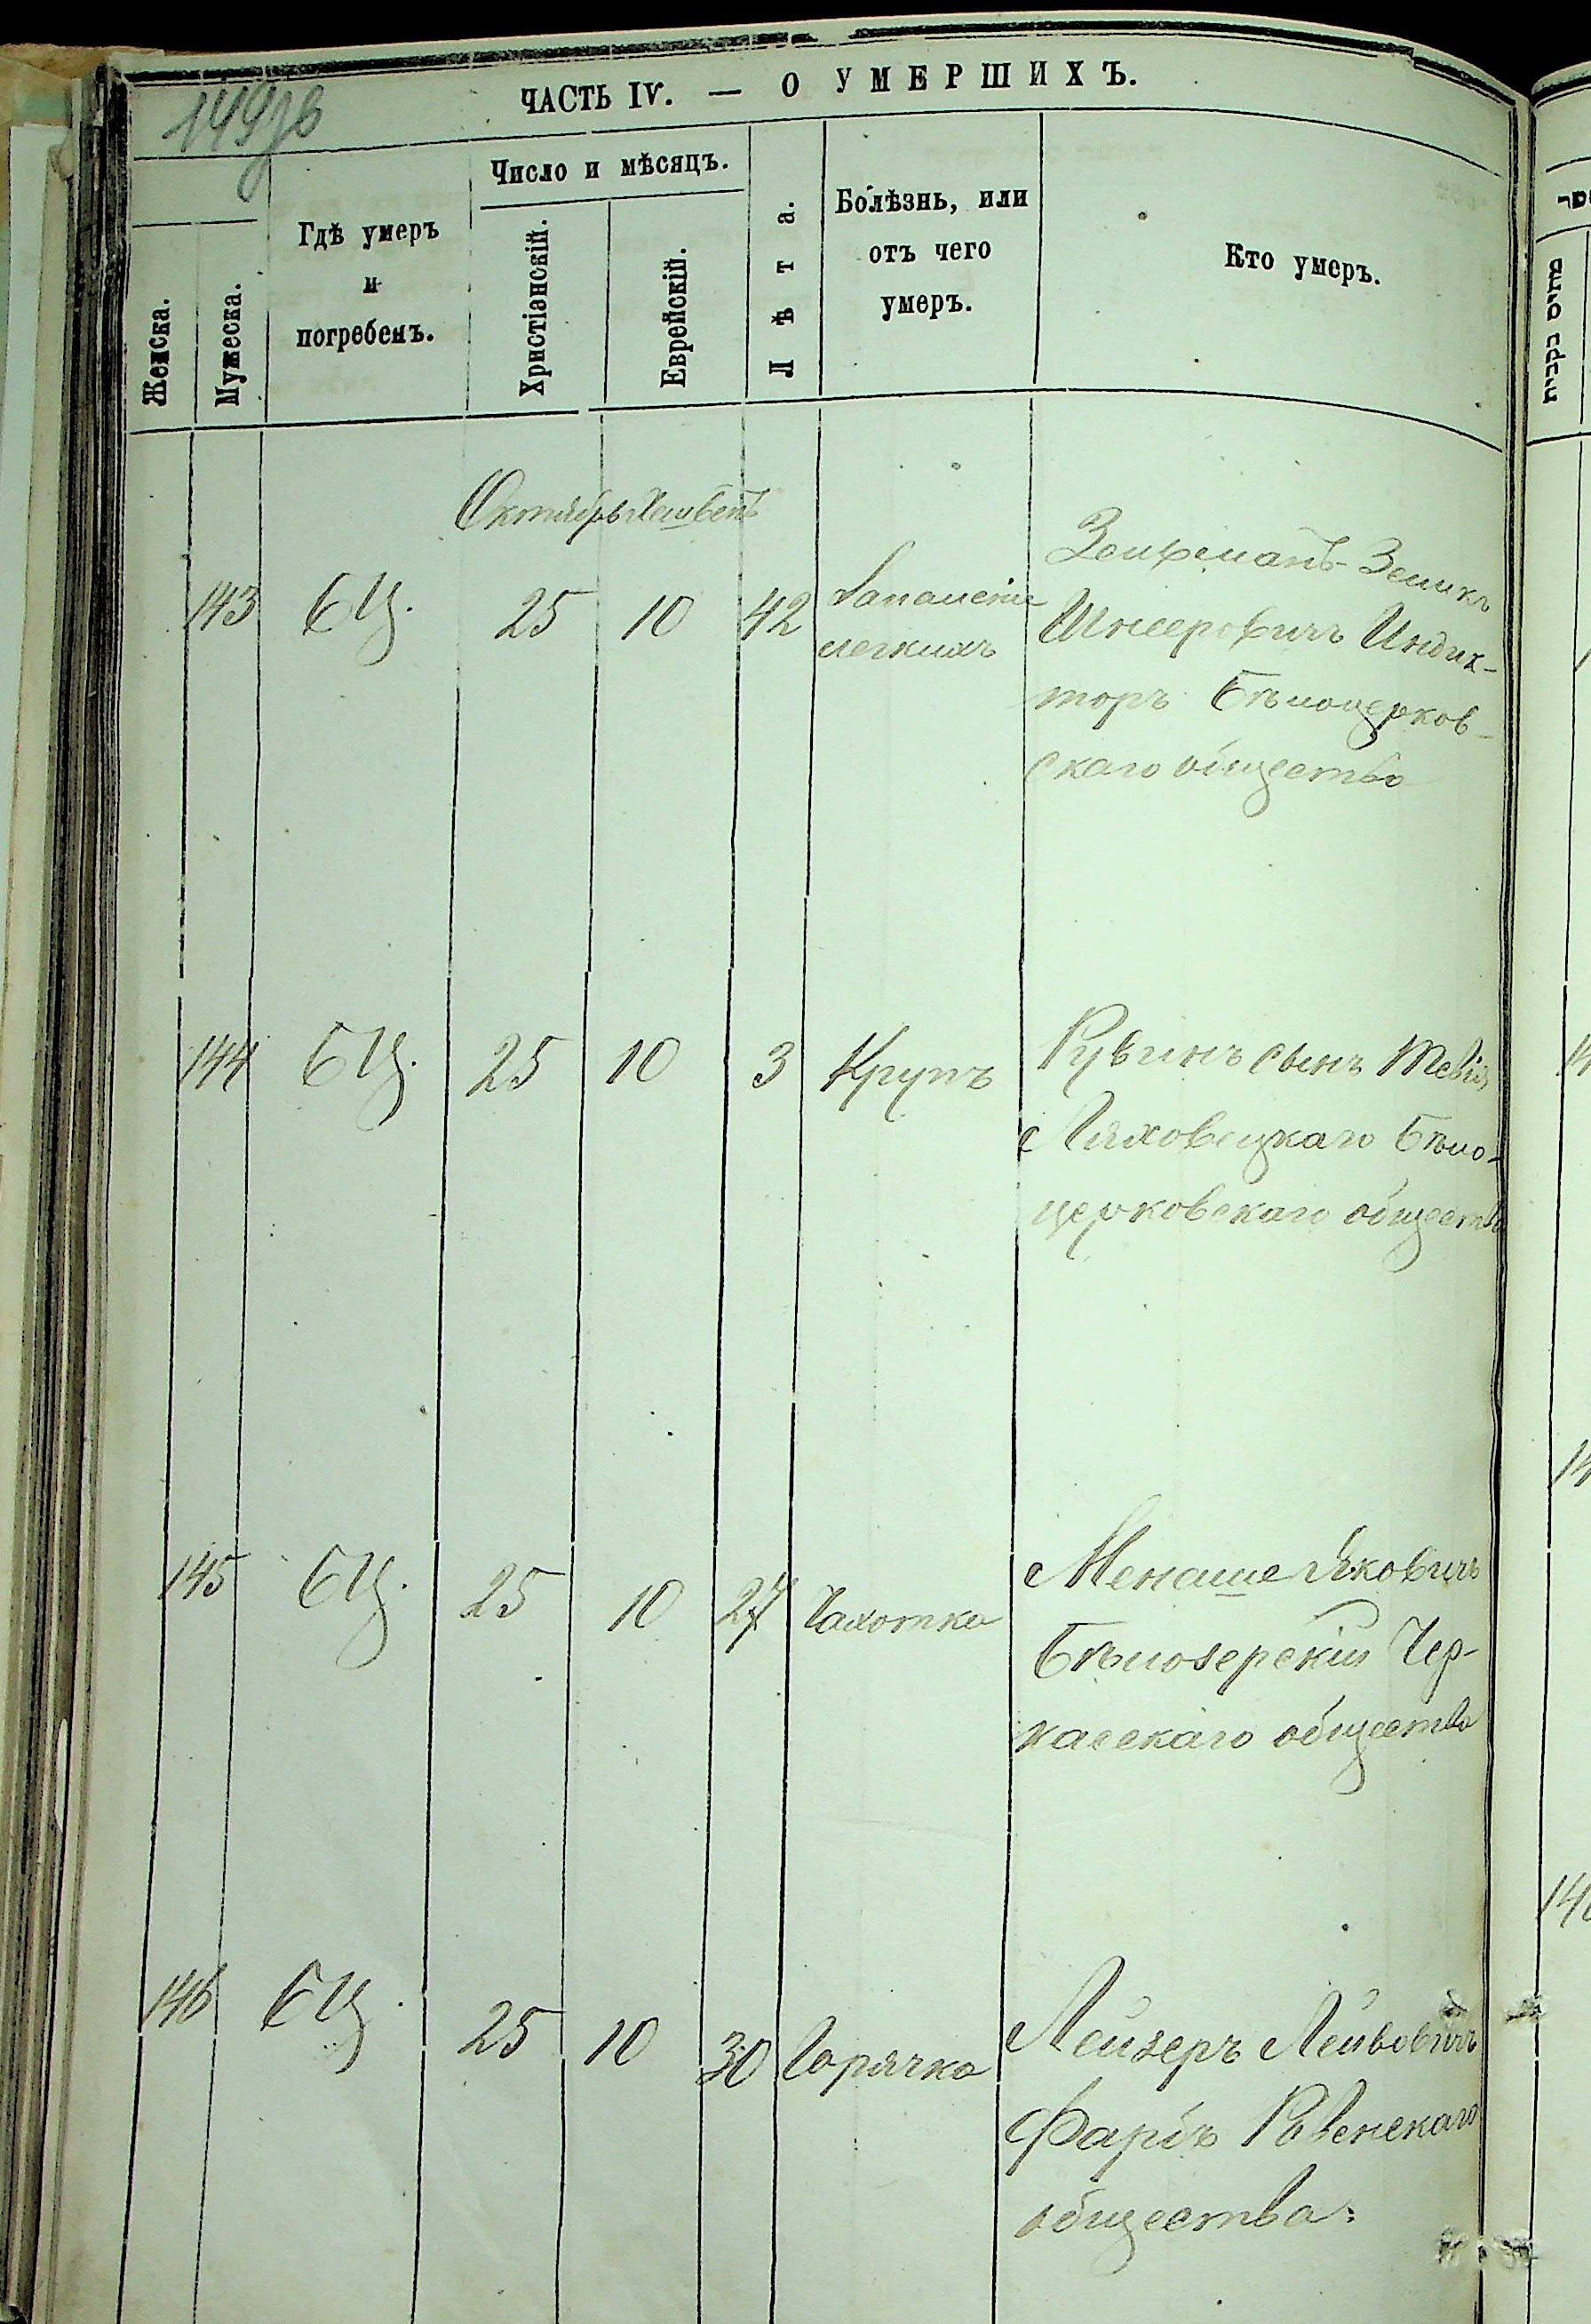 149зв
ЧАСТЬ IV. — О УМЕРШИХЪ.
Женска.
Мужеска.
Гдѣ умеръ
и
погребенъ.
Число и мѣсяцъ.
Христіанскій.
Еврейскій.
Лѣта.
Болѣзнь, или
отъ чего
умеръ.
Кто умеръ.
Октябрь Хешвенъ
143 БЦ. 25 10 42 Запаленіе
легкихъ
Зелигъ
Шнееровичъ Индик-
торъ Бѣлоцерков-
скаго общества
144 БЦ. 25 10 3 Крупъ
Рувинъ сынъ Тевія
Ляховецкаго Бѣло-
церковскаго общества
145 БЦ. 25 10 27 Чахотка
Менаше Яковичъ
Бѣлозерскій Чер-
касскаго общества
146 БЦ. 25 10 30 Горячка
Лейзеръ Лейбовичъ
Фарбъ Ровенскаго
общества.
מתים